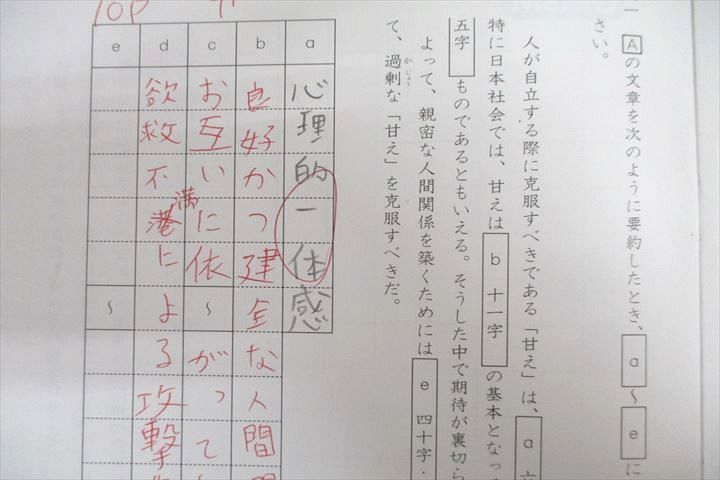 一 Aの文章を次のように要約したとき、a～eに
さい。
人が自立する際に克服すべきである「甘え」は、a 六
特に日本社会では、甘えは b 十一字 の基本となっ
五字 ものであるともいえる。そうした中で期待が裏切ら
よって、親密な人間関係を築くためには e 四十字・
て、過剰な「甘え」を克服すべきだ。
かじょう
a 心理的一体感
b 良好かつ建全な人間
c お互いに依～がって
d 欲救不満による攻撃
e ～
10P